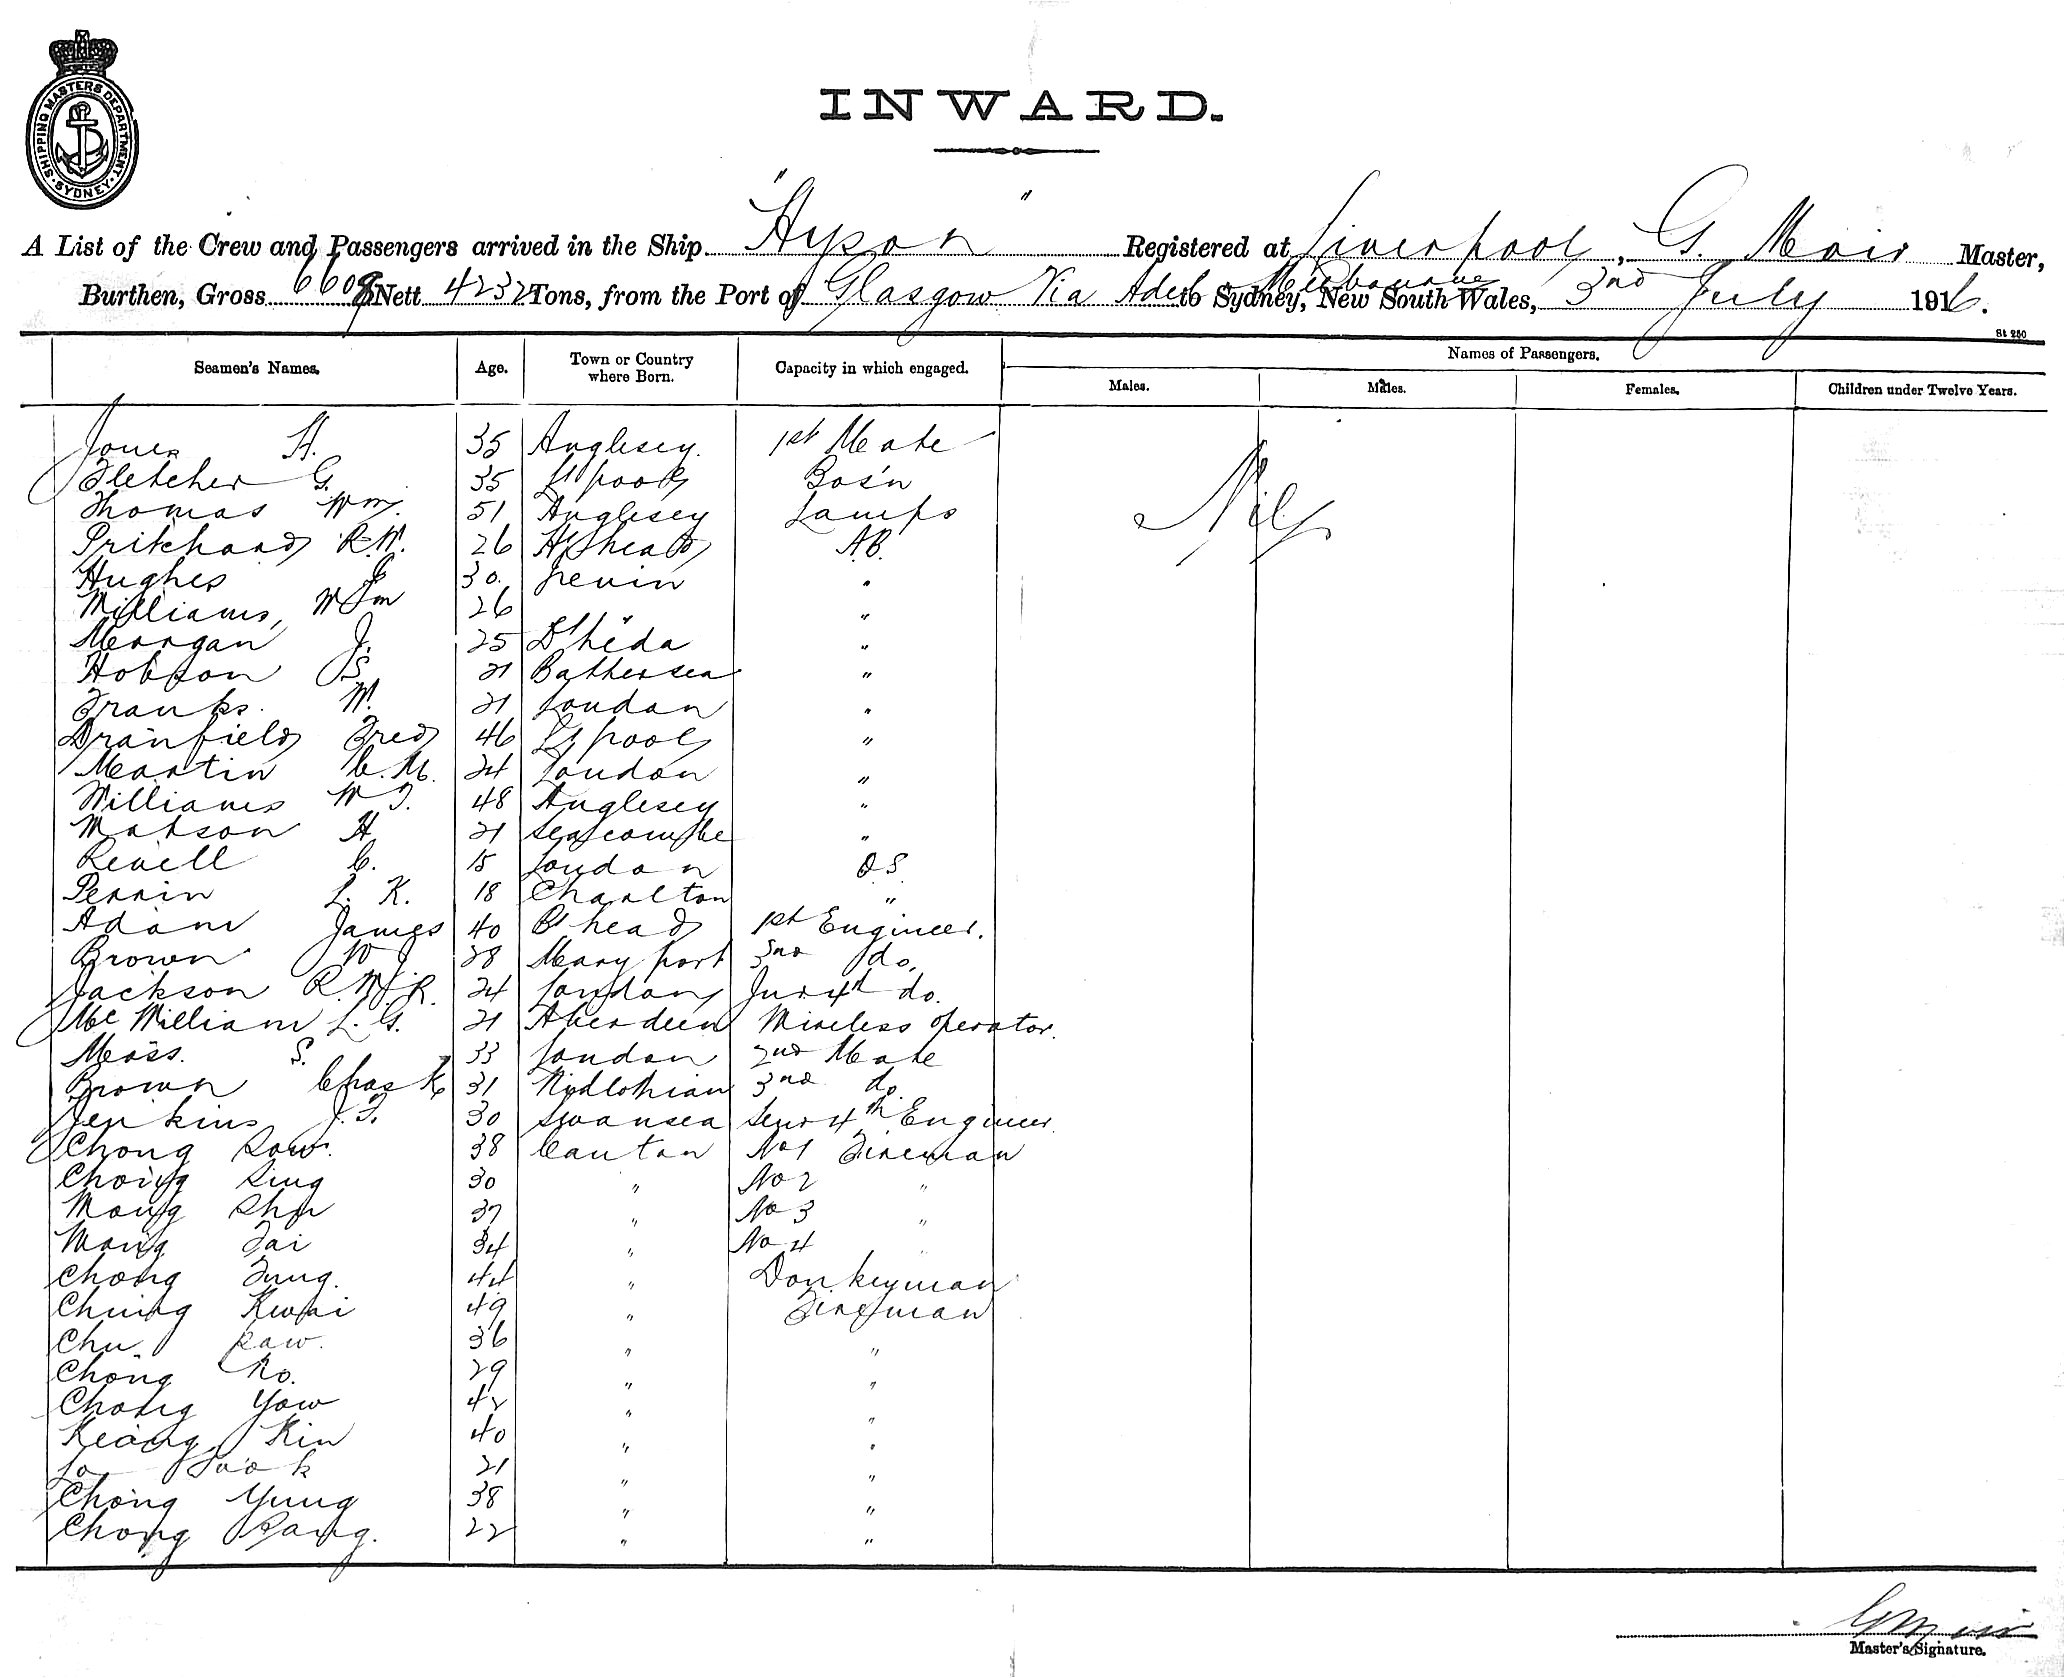 SHIPPING MASTERS DEPARTMENT · SYDNEY ·
INWARD.
A List of the Crew and Passengers arrived in the Ship "Hyson" Registered at Liverpool, G. Moir Master,
Burthen, Gross 6608 Nett 4232 Tons, from the Port of Glasgow Via Adel & Melbourne to Sydney, New South Wales, 3rd July 1916.
St 250
Seamen's Names. Age. Town or Country where Born. Capacity in which engaged. Names of Passengers.
Males. Males. Females. Children under Twelve Years.
Jones H. 35 Anglesey. 1st Mate
Fletcher G. 35 L'pool Bos'n
Thomas Wm. 51 Anglesey Lamps Nil
Pritchard R.W. 26 H'head A.B.
Hughes J 30. Nevin "
Williams, Wm 26 " "
Morgan J. 25 D'heda "
Hobson S 21 Battersea "
Franks. W. 21 London "
Dranfield Fred 46 L'pool "
Martin C.M. 24 London "
Williams W T. 48 Anglesey "
Watson H 21 Seacombe "
Revell C. 15 London O.S.
Perrin L. K. 18 Charlton "
Adam James 40 B'head 1st Engineer.
Brown W J 28 Maryport 3rd do.
Jackson R.W.R. 24 London Junr 4th do.
McWilliam L. G. 21 Aberdeen Wireless operator.
Moss. S. 33 London 2nd Mate
Brown Chas K 31 Midlothian 3rd do.
Jenkins J.T. 30 Swansea Senr 4th Engineer.
Chong Sow. 38 Canton No 1 Fireman
Chong Sing 30 " No 2 "
Wong Shu 37 " No 3 "
Wong Tai 34 " No 4 "
Chong Tung. 44 " Donkeyman
Chung Kwai 49 " Fireman
Chu Kaw. 36 " "
Chong Ko. 29 " "
Chong Yow 42 " "
Keong Kin 40 " "
Lo Sook 21 " "
Chong Yung 38 " "
Chong Pang. 22 " "
G Moir
Master's Signature.